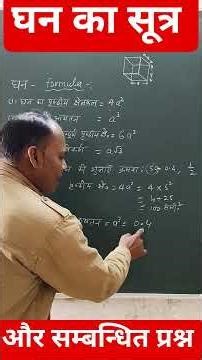 घन का सूत्र
घन - formula -:
घन का पृष्ठीय क्षेत्रफल = 4a²
= a³
पृष्ठीय क्षेत्रफल = 6a²
= a√3
की भुजाएँ क्रमशः 5, 0.4, 1/2
= 4a² = 4 × 5²
= 4 × 25
= 100
= a³ = 0.4
और सम्बन्धित प्रश्न